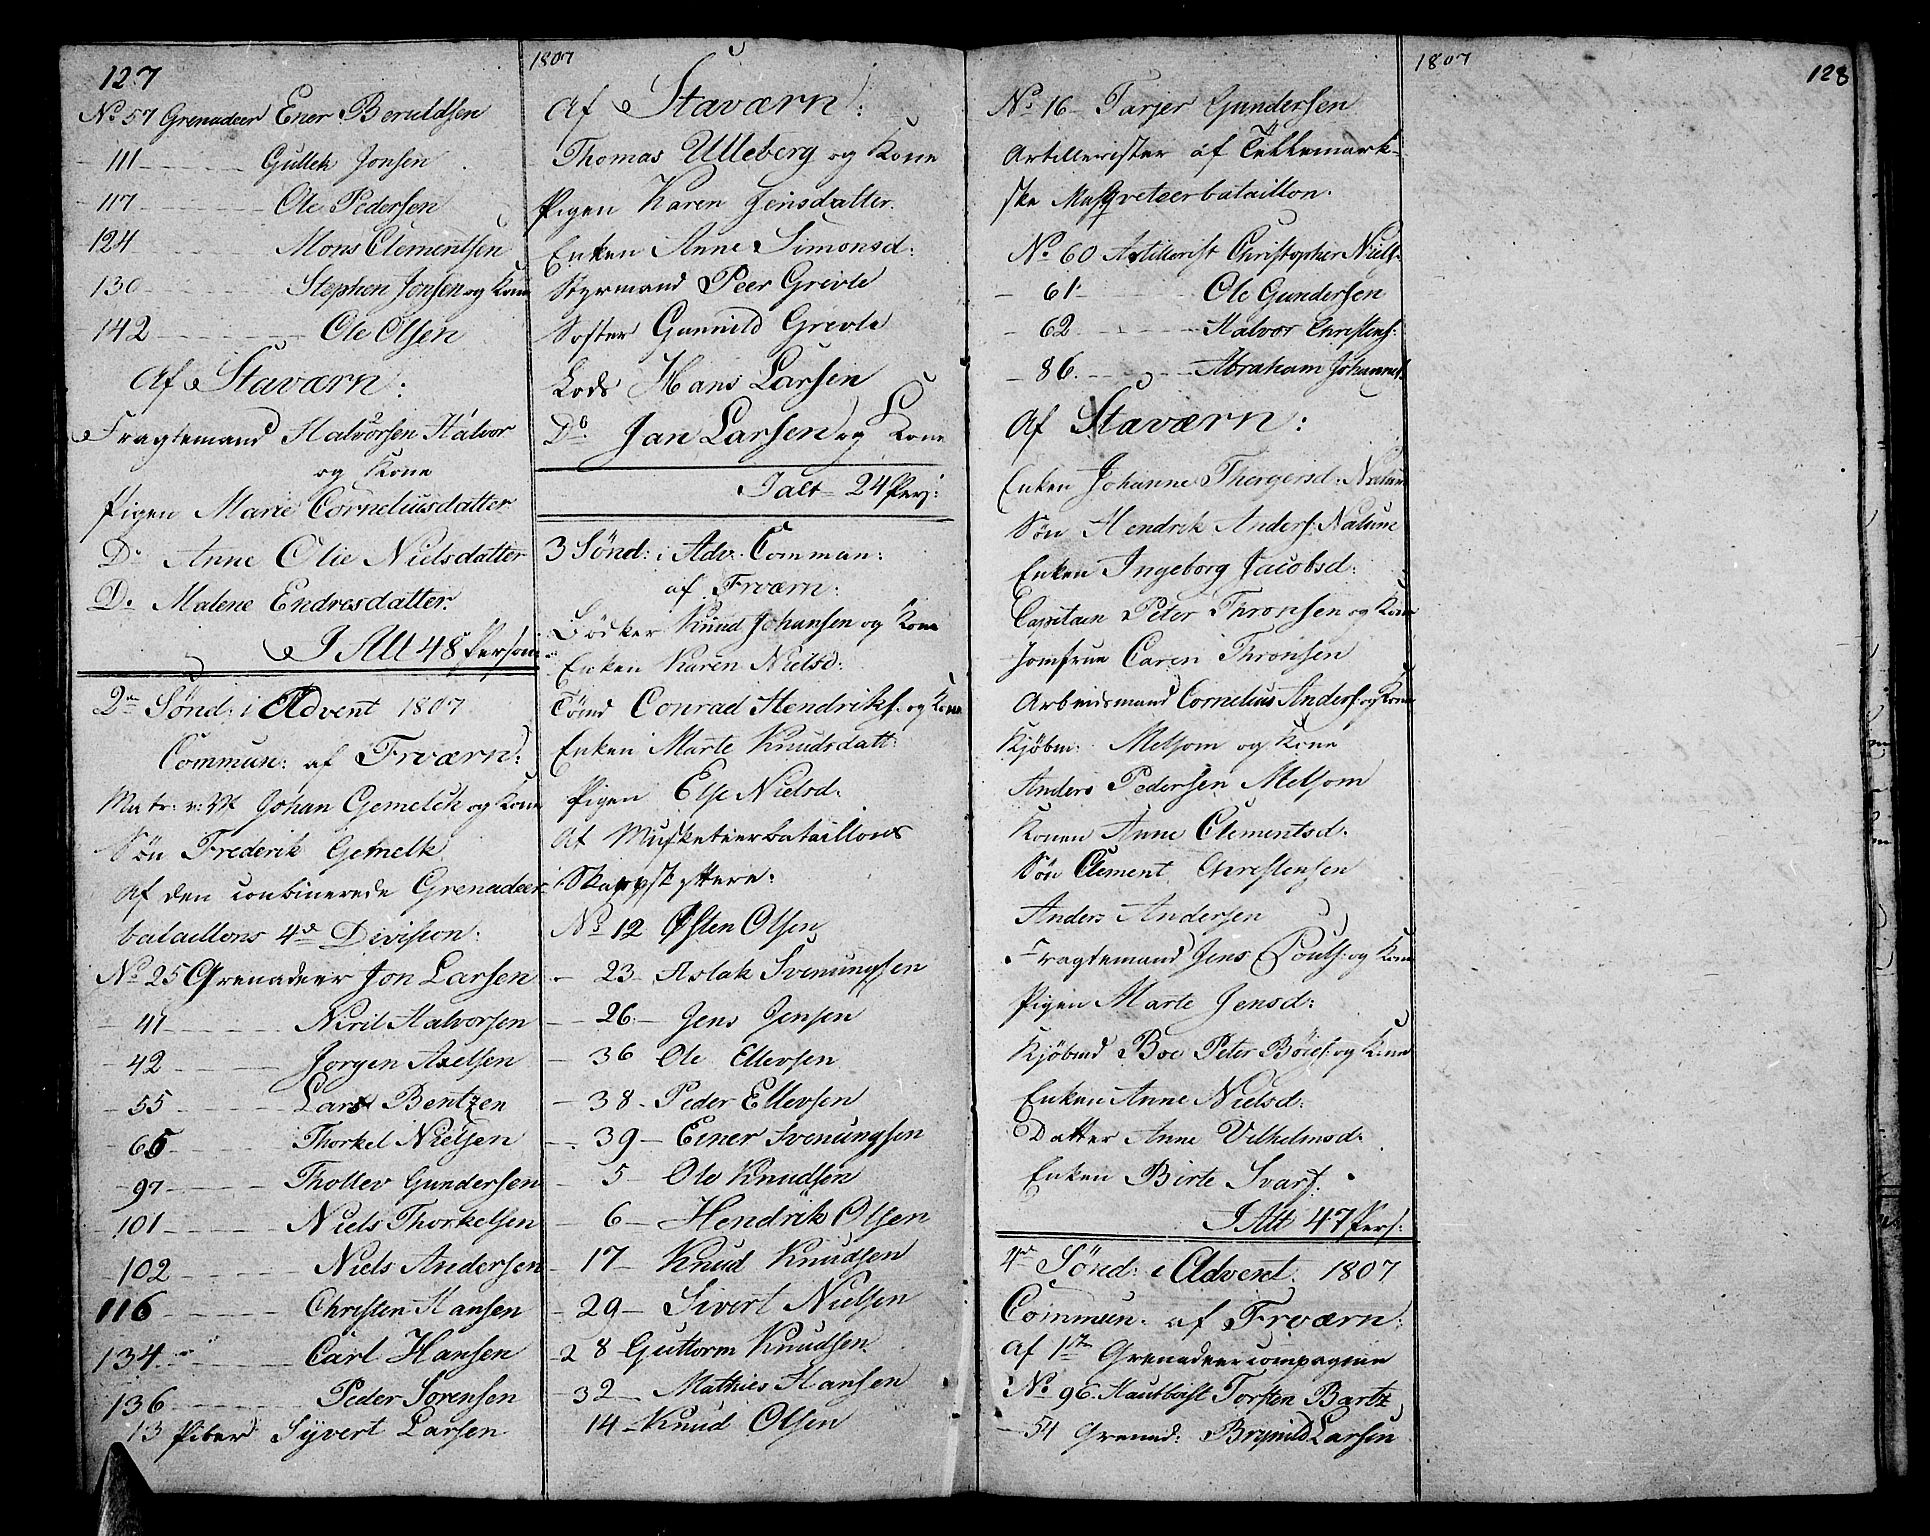 127
No 57 Grenadeer Ener Beruldsen
- 111 Gullek Jonsen
- 117 Ole Pedersen
124 Mons Clementsen
130 Stephen Jonsen og Kone
-142 Ole Olsen
Af Staværn:
Fragtemand Halvorsen Halvor
og Kone
Pigen Marie Corneliusdatter
Do Anne Olie Nielsdatter
Do Malene Endresdatter.
I Alt 48 Person:
2den Sønd: i Advent 1807
Commun: af Frværn:
Matr: v: Vf Johan Gemelck og Kone
Søn Frederik Gemelk
Af den conbinerede Grenadeer
bataillons 4de Division:
No 25 Grenadeer Jon Larsen
- 41 Niril Halvorsen
- 42 Jørgen Axelsen
- 55 Lars Bentzen
- 65 Thorkel Nielsen
- 97 Thollev Gundersen
101 Niels Thorkelsen
-102 Niels Andersen
116 Christen Hansen
134 Carl Hansen
136 Peder Sørensen
13 Piber Syvert Larsen
1807
Af Staværn:
Thomas Ulleberg og Kone
Pigen Karen Jensdatter.
Enken Anne Simonsd:
Styrmand Peer Grevle
Søster Gunnild Grevle
Lods Hans Larsen
Do Jan Larsen og Kone
I alt = 24 Pers:
3 Sønd: i Adv. Commun:
af Frværn:
Bødker Knud Johansen og Kone
Enken Karen Nielsd:
Tømd Conrad Hendriks. og Kone
Enken Marte Knudsdatt:
Pigen Else Nielsd.
Af Musketeerbataillons
Skarpskyttere:
No 12 Østen Olsen
- 23 Aslak Svenungsen
- 26 - Jens Jensen
- 36 Ole Ellevsen
- 38 - Peder Ellevsen
- 39 - Einer Svenungsen
- 5 - Ole Knudsen
- 6 - Hendrik Olsen
- 17 - Knud Knudsen
- 29 - Sivert Nielsen
- 28 Guttorm Knudsen
- 32 - Mathies Hansen
14 - Knud Olsen
No 16 - Tarjer Gundersen
Artillerister af Tellemark-
ske Musqveteerbataillon.
No 60 Artillerist Christopher Niels:
- 61 Ole Gundersen
- 62 Halvor Christens:
- 86. Abraham Johannes.
Af Staværn:
Enken Johanne Thergersd: Natum
Søn Hendrik Anders: Natum
Enken Ingeborg Jacobsd:
Capitain Peter Thronsen og Kone
Jomfrue Caren Thronsen
Arbeidsmand Cornelius Anders. og Kone
Kjøbm: Melsom og Kone
Anders Pedersen Melsom
Konen Anne Clementsd.
Søn Clement Christensen
Anders Andersen
Fragtemand Jens Pouls. og Kone
Pigen Marte Jensd:
Kjøbmd Boe Peter Böies. og Kone
Enken Anne Nielsd:
Datter Anne Vilhelmsd.
Enken Birte Svars.
I Alt 47 Pers:
4de Sønd: i Advent. 1807
Commun: af Frværn:
Af 1ste Grenadeercompagnie
No 96. Hautboist Torsten Bartz
- 54 Grenad: Brynild Larsen
1807
128